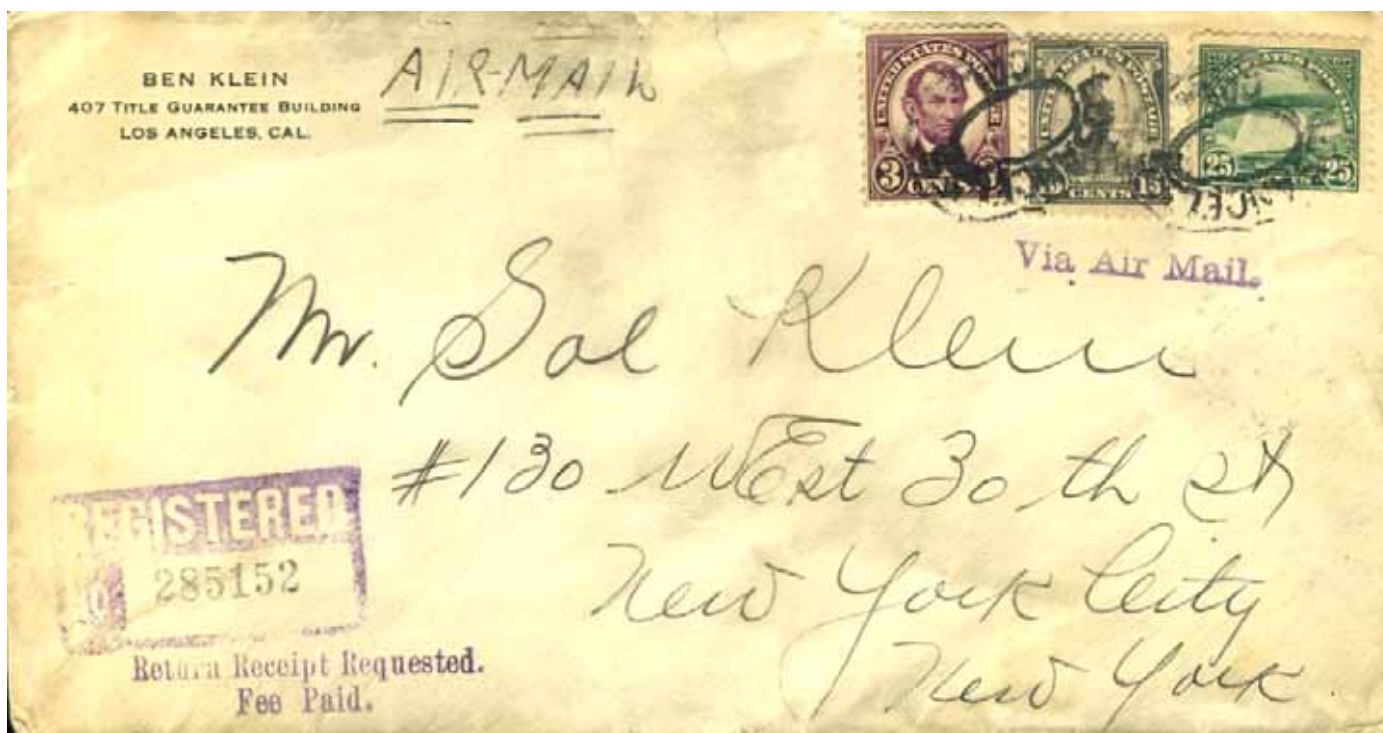 BEN KLEIN
407 TITLE GUARANTEE BUILDING
LOS ANGELES, CAL.
AIR-MAIL
UNITED STATES POSTAGE
3 CENTS 3
CENTS 15
25 25
Via Air Mail.
Mr. Sol Klein
#130 West 30th St
New York City
New York
REGISTERED
285152
Return Receipt Requested.
Fee Paid.